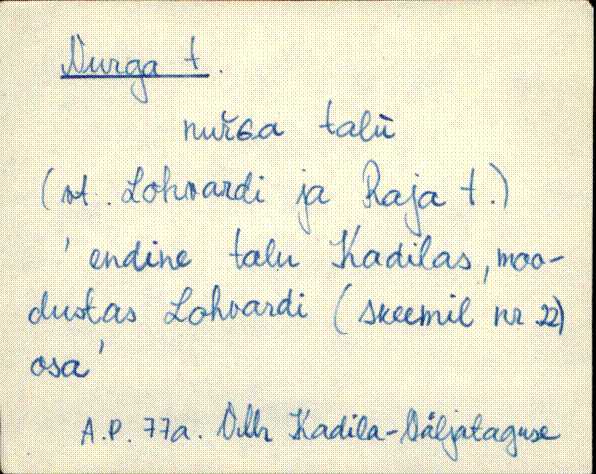 Nurga t.
nuřɢa talù
(vt. Lohvardi ja Raja t.)
'endine talu Kadilas, moo-
dustas Lohvardi (skeemil nr 22)
osa'
A.P. 77a. Kadila-Väljataguse